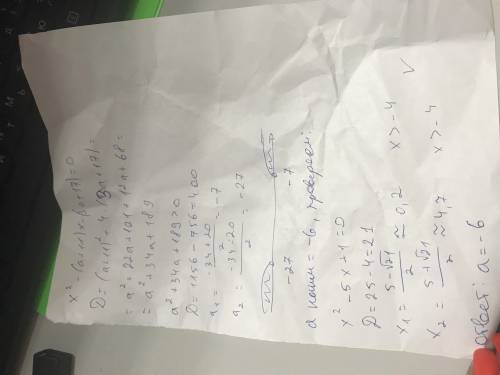 x² - (a+11)x - (3a+17) = 0
D = (a+11)² + 4(3a+17) =
= a² + 22a + 121 + 12a + 68 =
= a² + 34a + 189
a² + 34a + 189 > 0
D = 1156 - 756 = 400
a₁ = (-34+20)/2 = -7
a₂ = (-34-20)/2 = -27
-27 -7
а наим = -6, проверяем:
x² - 5x + 1 = 0
D = 25 - 4 = 21
x₁ = (5-√21)/2 ≈ 0,2 x > -4 V
x₂ = (5+√21)/2 ≈ 4,7 x > -4
ответ: a = -6